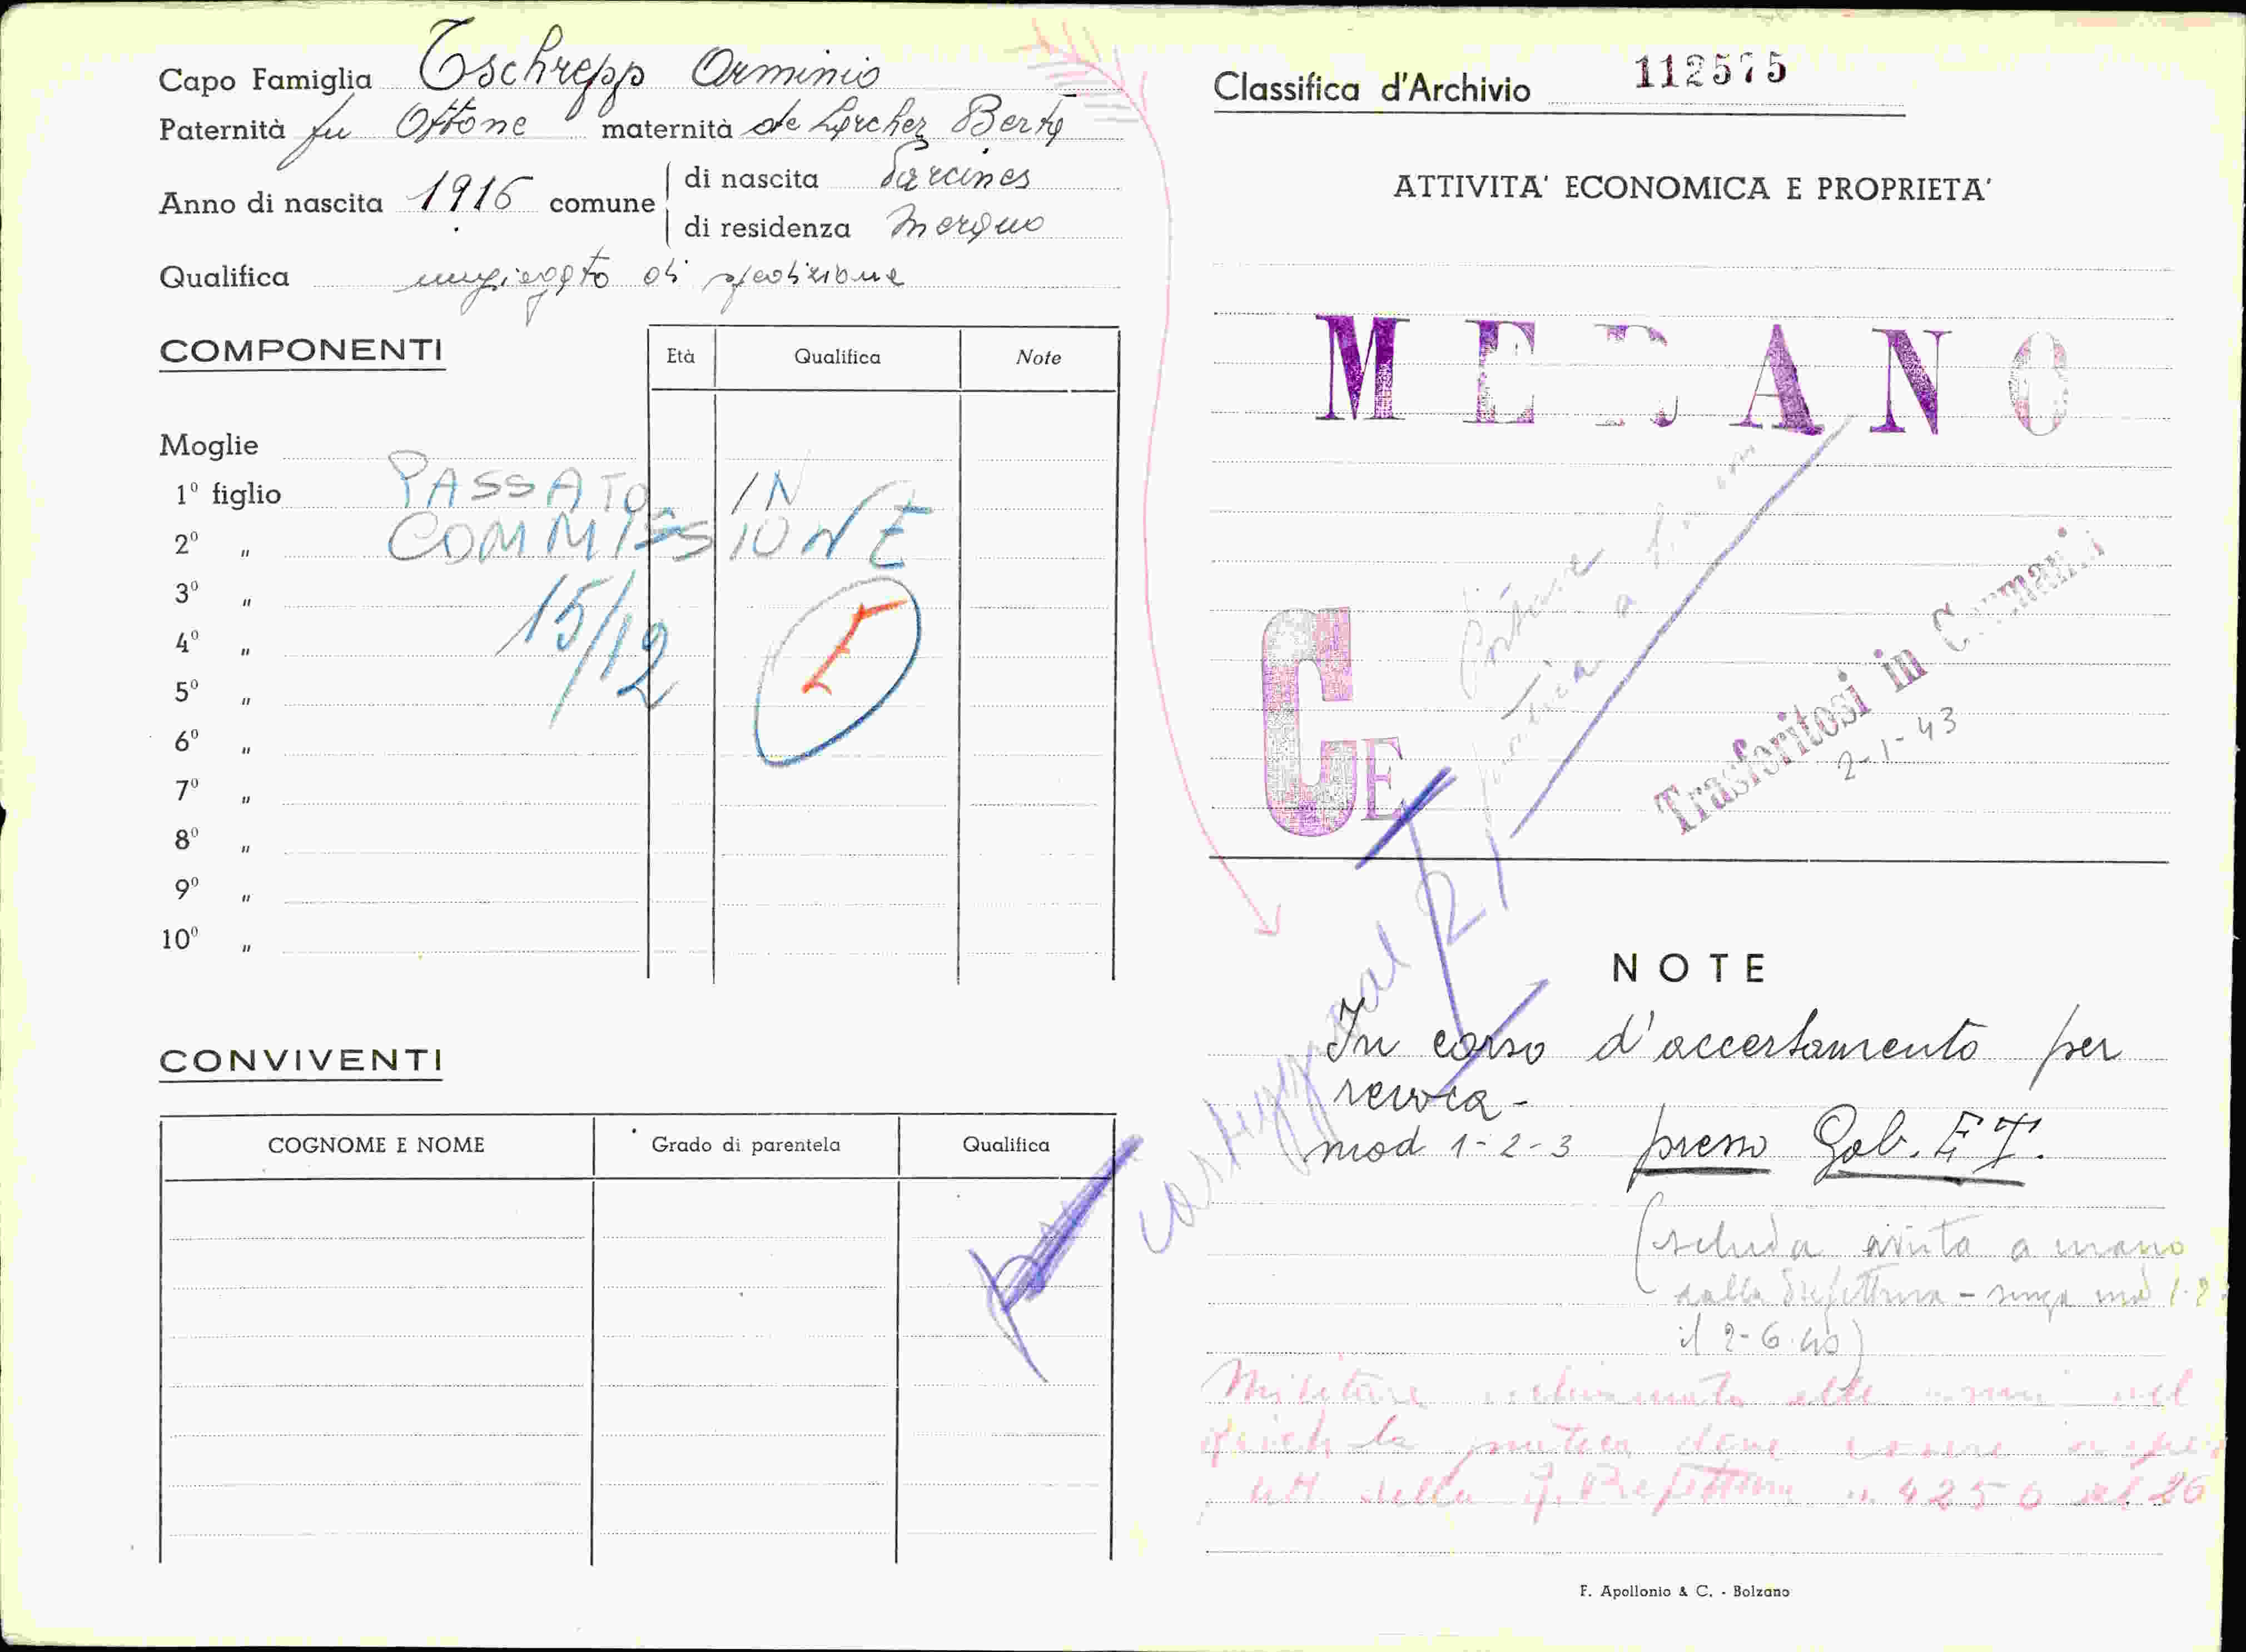 Capo Famiglia Tschrepp Orminio
Paternità fu Ottone maternità de Lercher Berta
Anno di nascita 1916 comune
di nascita Parcines
di residenza Merano
Qualifica impiegato di spedizione
COMPONENTI
Età Qualifica Note
Moglie
1º figlio
2º "
3º "
4º "
5º "
6º "
7º "
8º "
9º "
10º "
PASSATO IN
COMMISSIONE
15/12
CONVIVENTI
COGNOME E NOME Grado di parentela Qualifica
Classifica d'Archivio 112575
ATTIVITA' ECONOMICA E PROPRIETA'
MERANO
CE
Trasferitosi in Germania
2-1-43
NOTE
In corso d'accertamento per
revoca -
mod 1-2-3 presso Gab. E T.
(scheda avuta a mano
dalla Prefettura - senza mod 1.2
il 2-6-40)
Militare richiamato alle armi nel
la pratica deve essere
della R. Prefettura n. 4256 del 26
F. Apollonio & C. - Bolzano